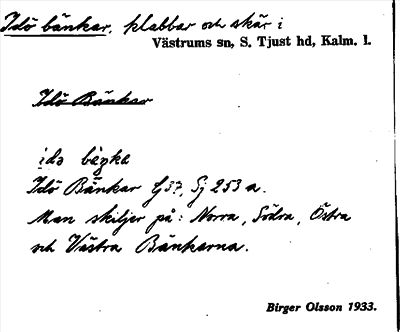 Idö bänkar, klabbar och skär i
Västrums sn, S. Tjust hd, Kalm. l.
Idö Bänkar
idə bäŋka
Idö Bänkar G 37, Sj 253 a.
Man skiljer på: Norra, Södra, Östra
och Västra Bänkarna.
Birger Olsson 1933.